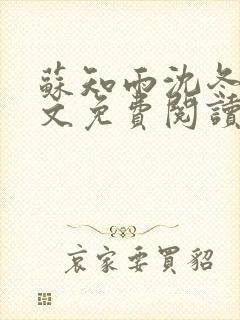 蘇知雨沈冬
文免費閱讀
哀家要買貂